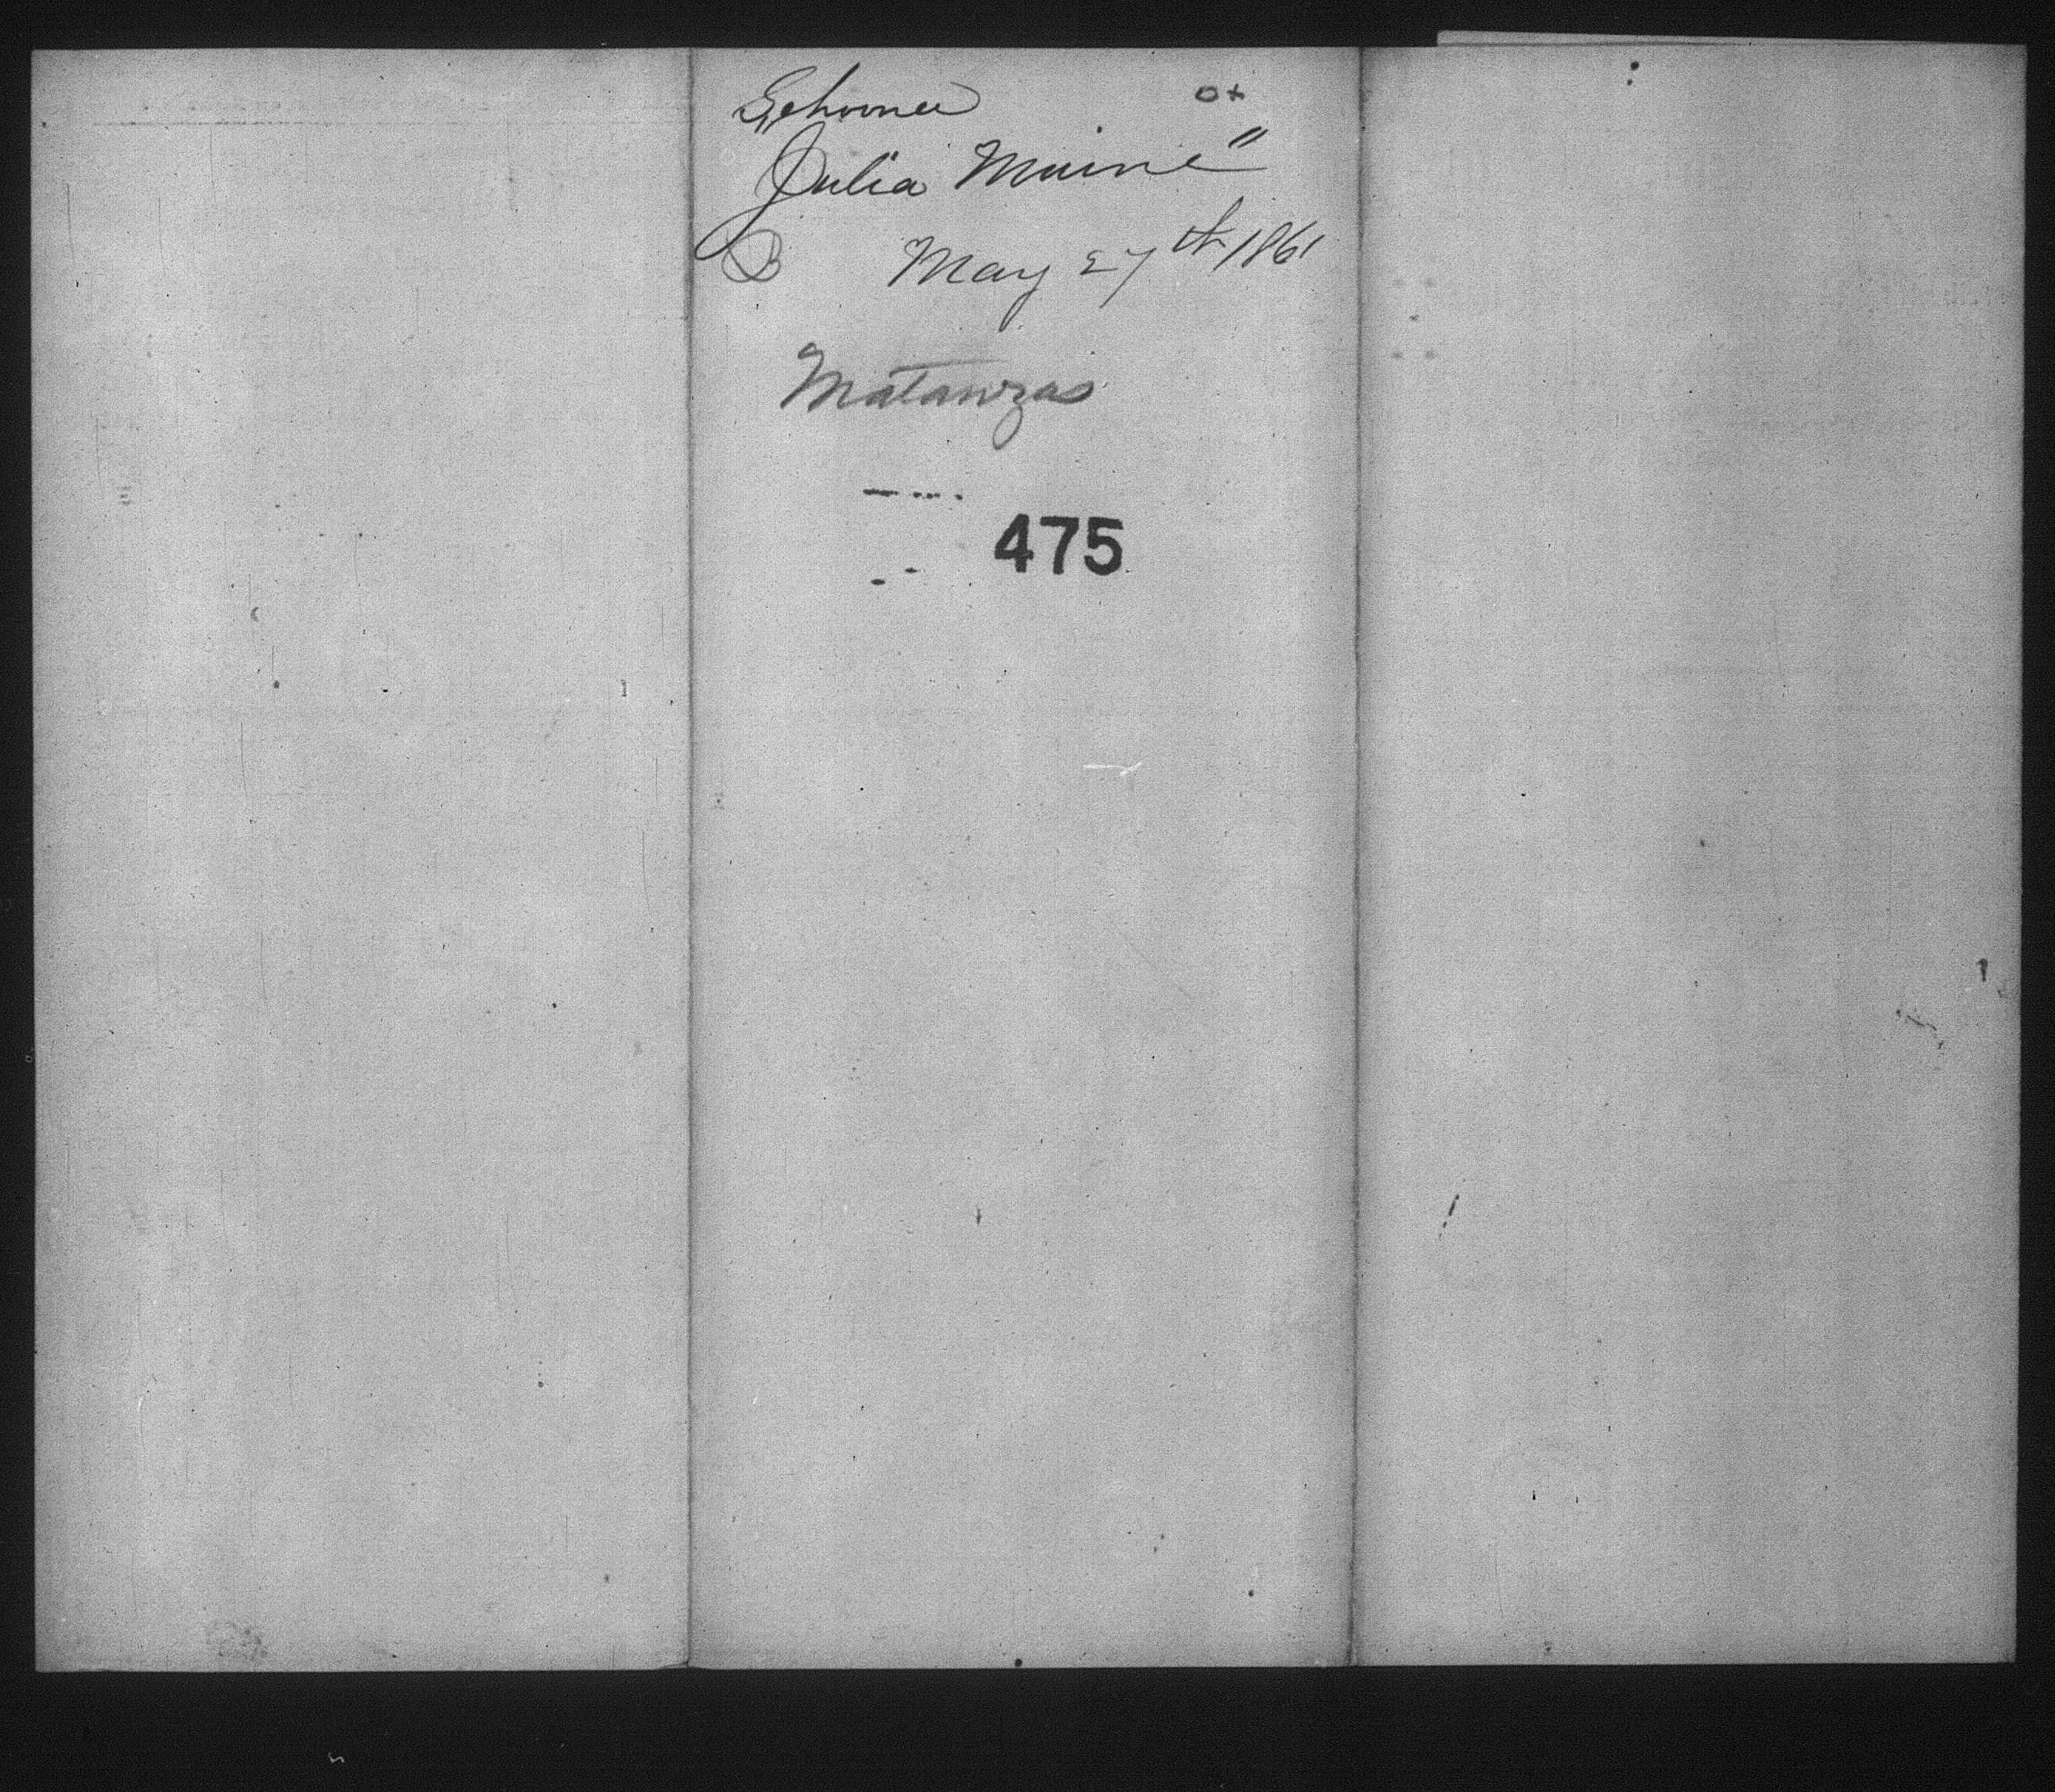 Schooner o+
Julia Maine"
B May 27th 1861
Matanzas
475